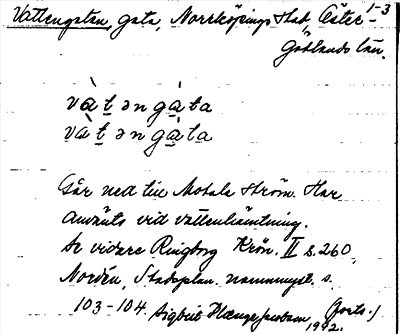 1-3
Vattengatan, gata, Norrköpings stad Öster-
Götlands län.
và t ən gà ta
và t ən gà ta
Går ned till Motala ström. Har
använts vid vattenhämtning.
Se vidare Ringborg Krön. II s. 260,
Nordén, Stadsplan. namnmyst. s.
103-104. Sigbrit Plænge Jacobson
1992. (forts.)